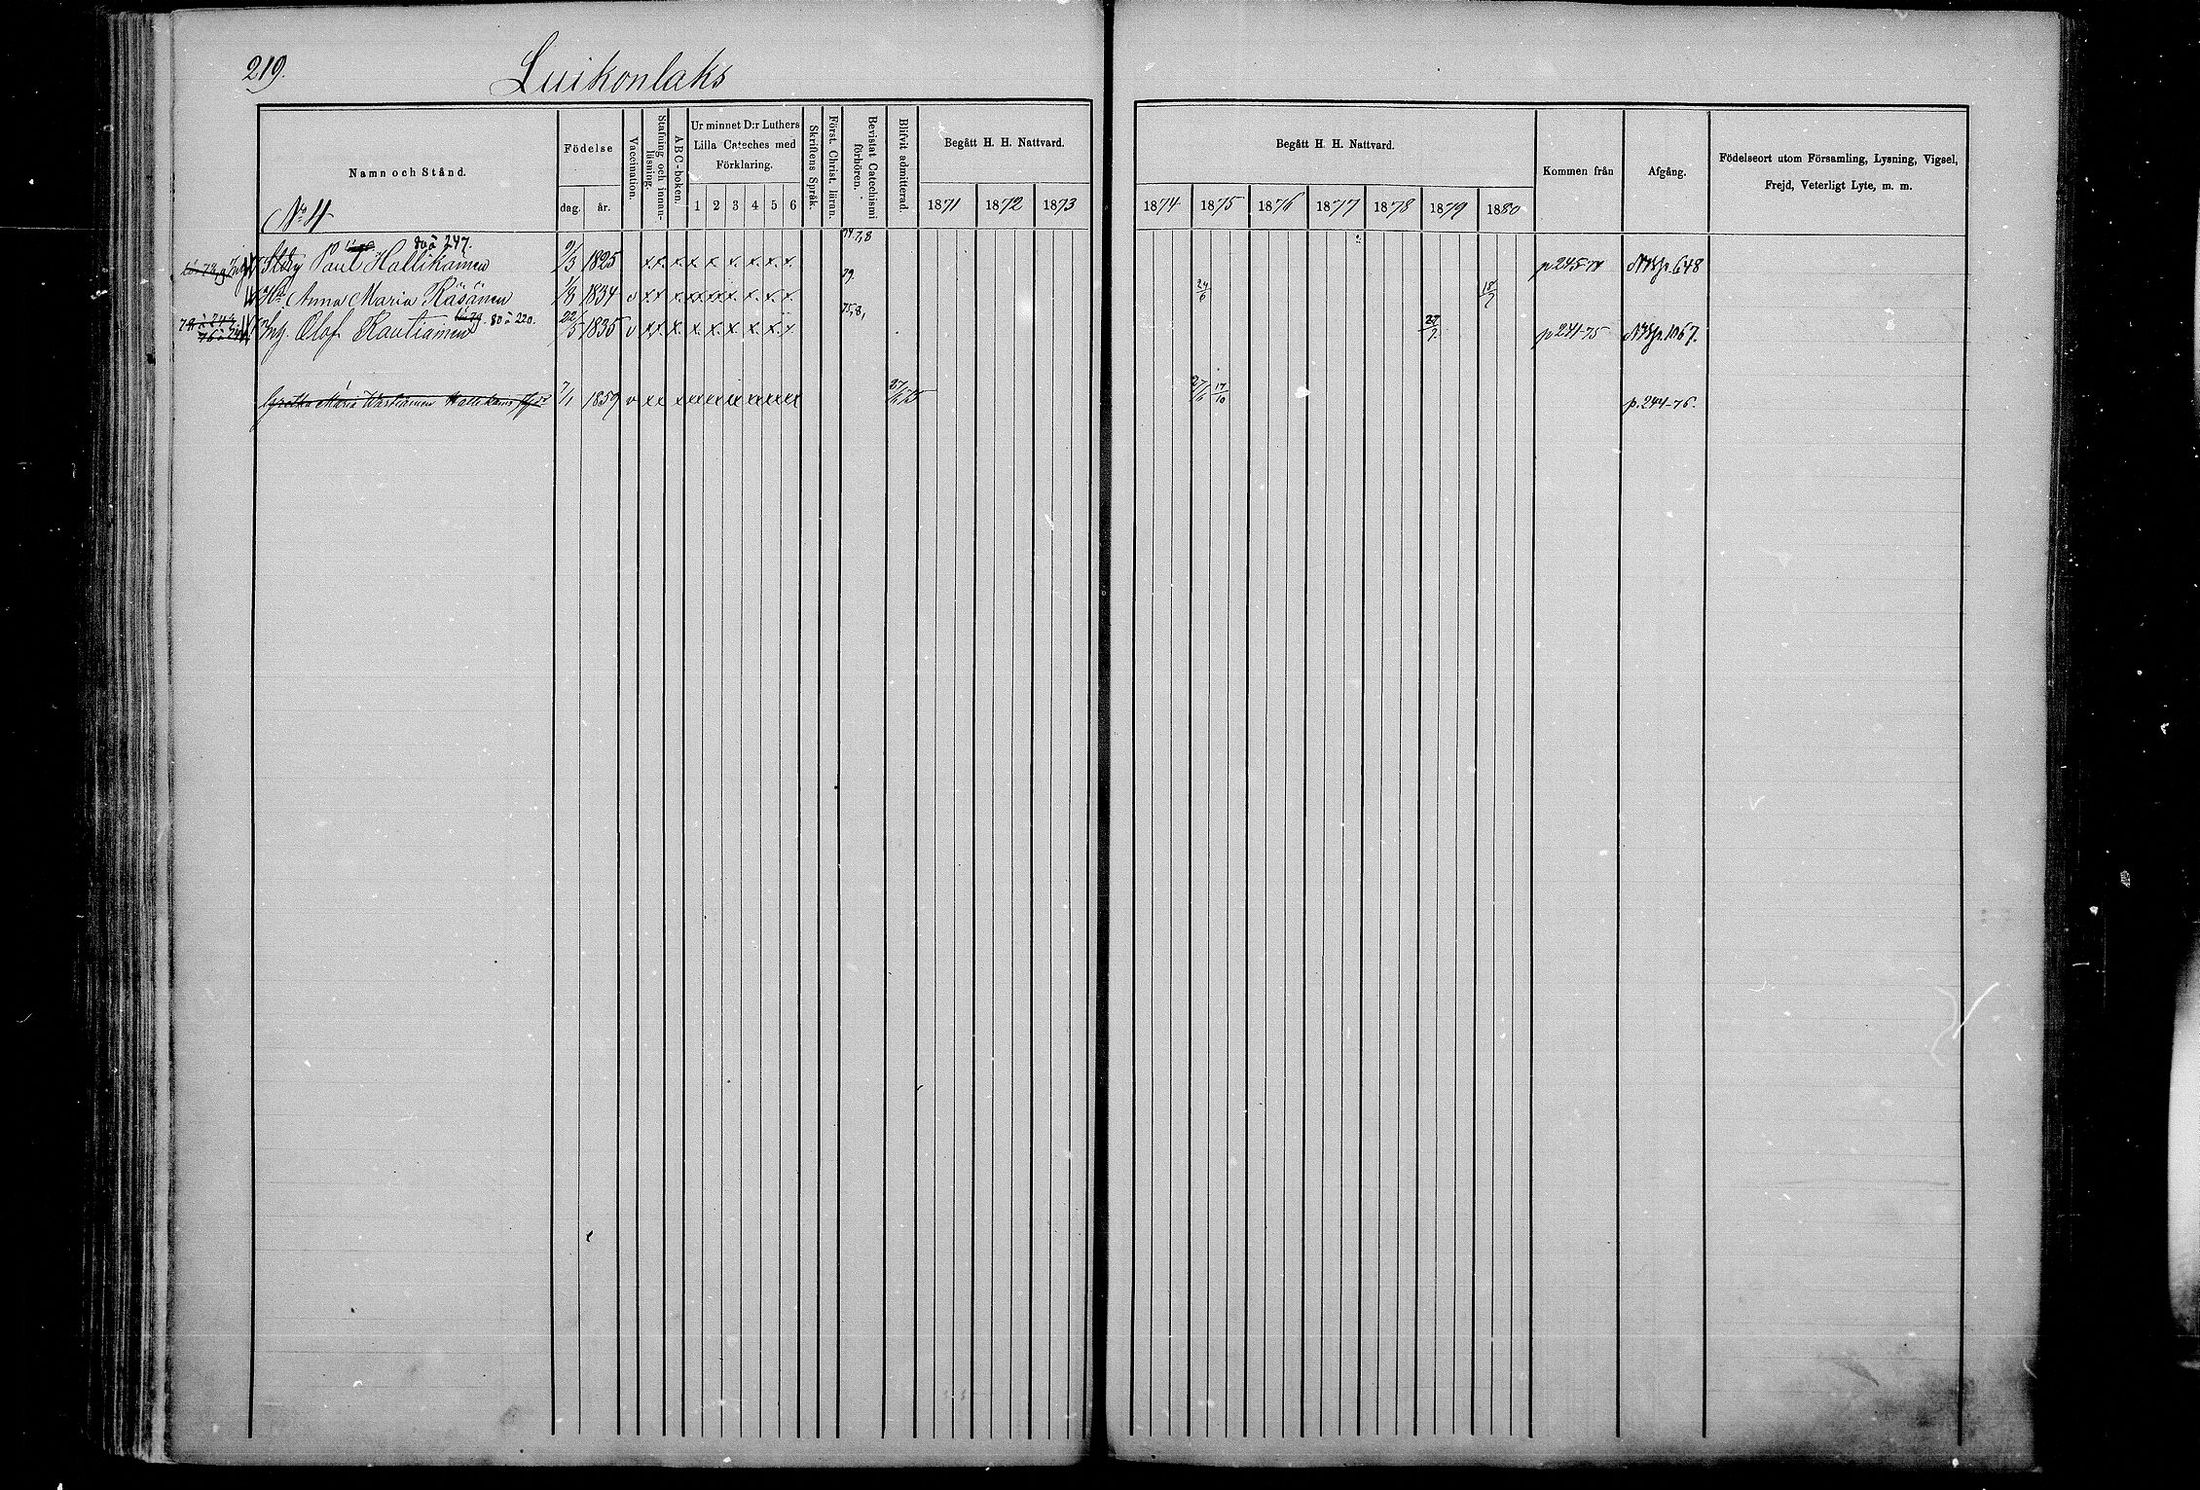 219.
Luikonlaks
Namn och Stånd.
Födelse
dag. år.
Vaccination.
Stafning och innanläsning.
ABC-boken.
Ur minnet D:r Luthers
Lilla Cateches med
Förklaring.
1 2 3 4 5 6
Skriftens Språk.
Först. Christ. läran.
Bevistat Catechismi förhören.
Blifvit admitterad.
Begått H. H. Nattvard.
1871 1872 1873
Begått H. H. Nattvard.
1874 1875 1876 1877 1878 1879 1880
Kommen från
Afgång.
Födelseort utom Församling, Lysning, Vigsel,
Frejd, Veterligt Lyte, m. m.
80 à 247. 7,8
Paul Hallikainen 9/3 1825 x x x x x x x x x p 245-74 p. 648
79.
Hu Anna Maria Räsänen 1/3 1834 v x x x x x x x x x 24/6 18/7
80 à 220. 75,8,
Inh. Olof Rautiainen 22/5 1835 v x x x x x x x x x 27/7 p 241-75 p. 1067.
Maria 7/1 1859 v x x x x x x x x x 27/6 75 27/6 17/10 p. 244-76.